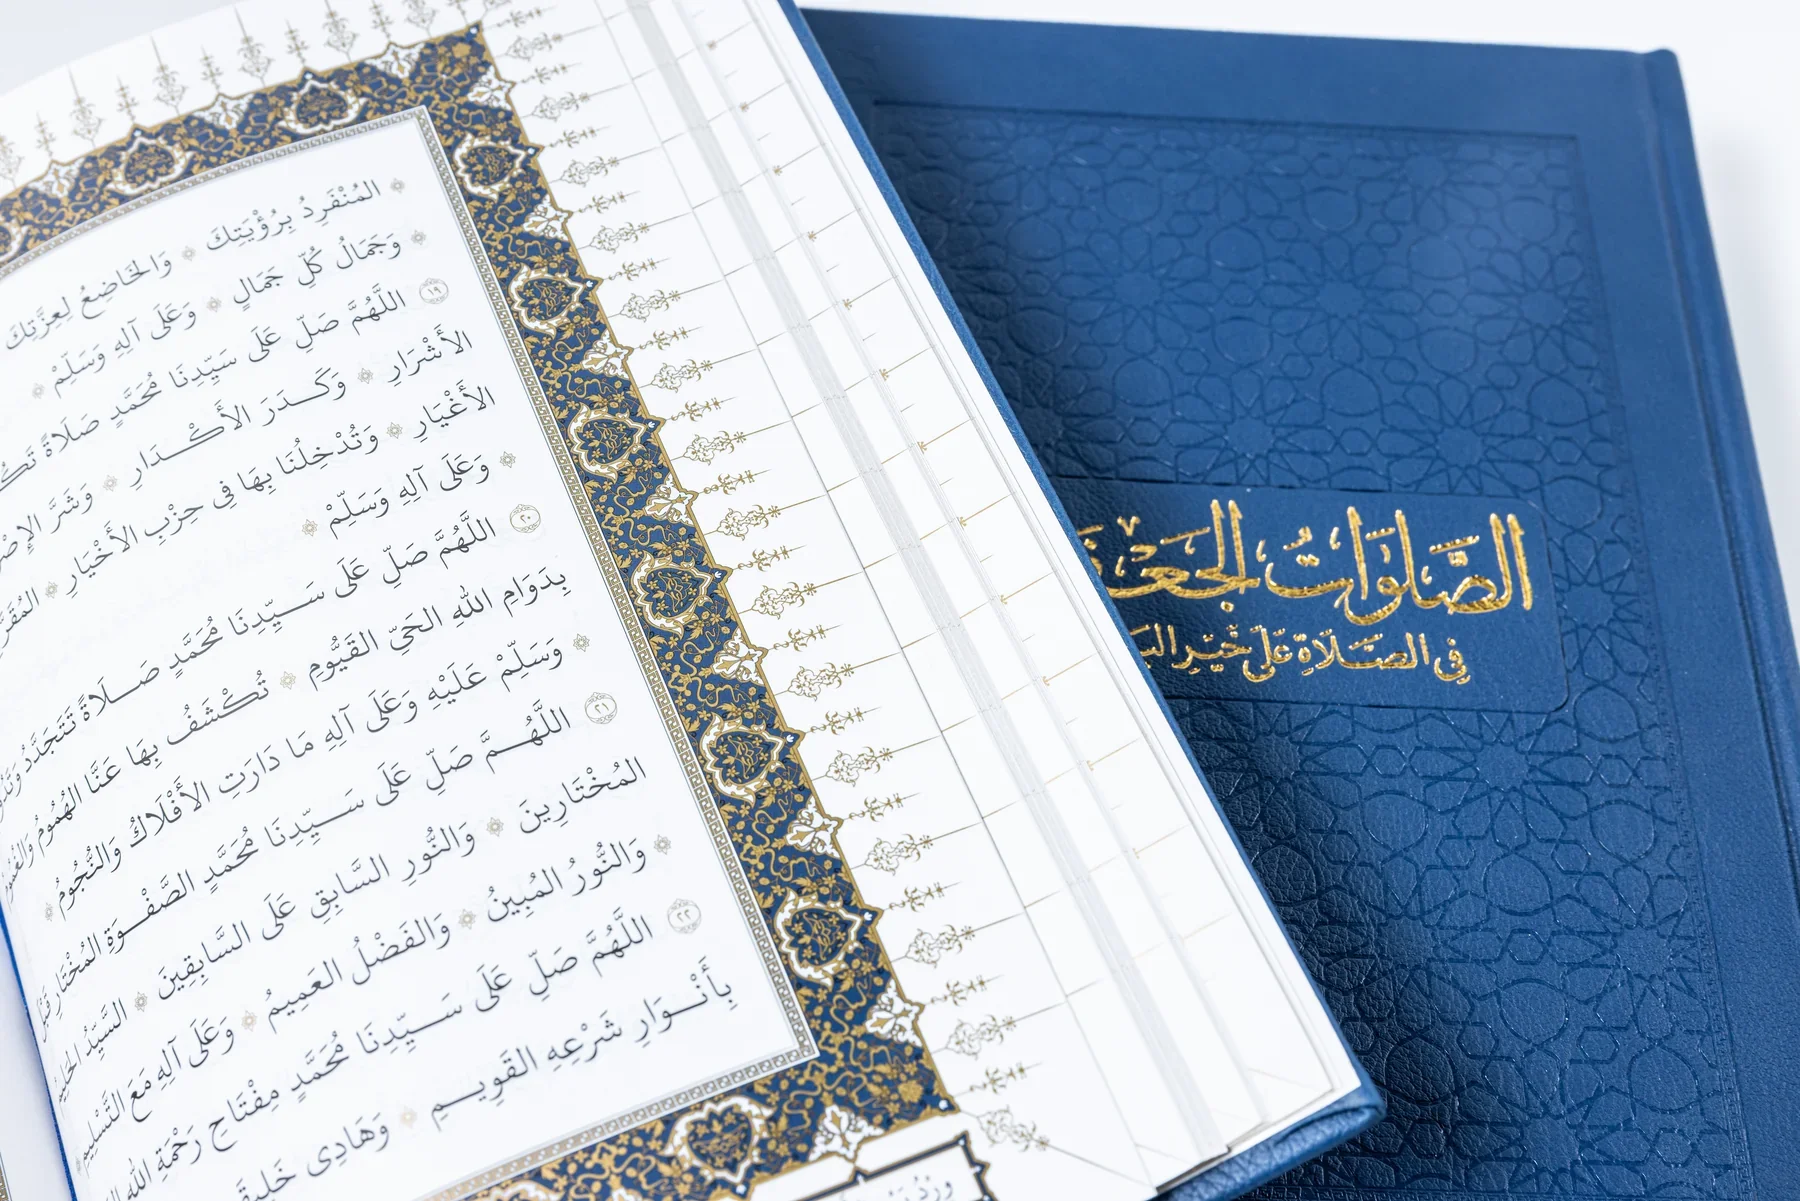 ❁ المُنْفَرِدُ بِرُؤْيَتِكَ ❁ وَالخَاضِعُ لِعِزَّتِكَ
❁ وَجَمَالُ كُلِّ جَمَالٍ ❁ وَعَلَى آلِهِ وَسَلِّمْ ❁
١٩ اللَّهُمَّ صَلِّ عَلَى سَيِّدِنَا مُحَمَّدٍ صَلَاةً
الأَشْرَارِ ❁ وَكَــدَرَ الأَكْــدَارِ ❁ وَشَرَّ
الأَغْيَارِ ❁ وَتُدْخِلُنَا بِهَا فِي حِزْبِ الأَخْيَارِ ❁
❁ وَعَلَى آلِهِ وَسَلِّمْ ❁
٢٠ اللَّهُمَّ صَلِّ عَلَى سَــيِّدِنَا مُحَمَّدٍ صَــلَاةً تَتَجَدَّدُ
بِدَوَامِ اللهِ الحَيِّ القَيُّومِ ❁ تُكْشَفُ بِهَا عَنَّا الهُمُومُ
❁ وَسَلِّمْ عَلَيْهِ وَعَلَى آلِهِ مَا دَارَتِ الأَفْلَاكُ وَالنُّجُومُ ❁
٢١ اللَّهُــمَّ صَلِّ عَلَى سَــيِّدِنَا مُحَمَّدٍ الصَّفْــوَةِ المُخْتَارِ قَبْلَ
المُخْتَارِينَ ❁ وَالنُّورِ السَّابِقِ عَلَى السَّابِقِينَ ❁ السَّيِّدُ
❁ وَالنُّورُ المُبِينُ ❁ وَالفَضْلُ العَمِيمُ ❁ وَعَلَى آلِهِ مَعَ التَّسْلِيمِ ❁
٢٢ اللَّهُمَّ صَلِّ عَلَى سَــيِّدِنَا مُحَمَّدٍ مِفْتَاحِ رَحْمَةِ اللهِ
بِأَنْــوَارِ شَرْعِهِ القَوِيــمِ ❁ وَهَادِي
الصَّلَوَاتُ
فِي الصَّلَاةِ عَلَى خَيْرِ